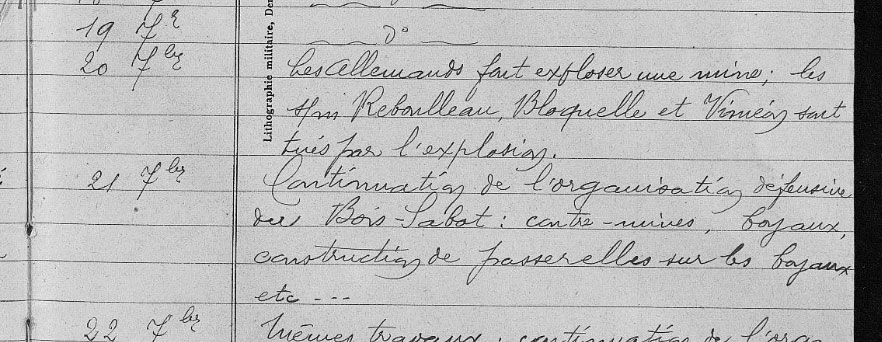 19 7e
d°
20 7bre
Les Allemands font exploser une mine; les
s/m Reboulleau, Bloquelle et Viméy sont
tués par l'explosion.
21 7bre
Continuation de l'organisation défensive
du Bois-Sabot : contre-mines, boyaux,
construction de passerelles sur les boyaux
etc ---
22 7bre
Mêmes travaux : continuation de l'orga
Lithographie militaire, De